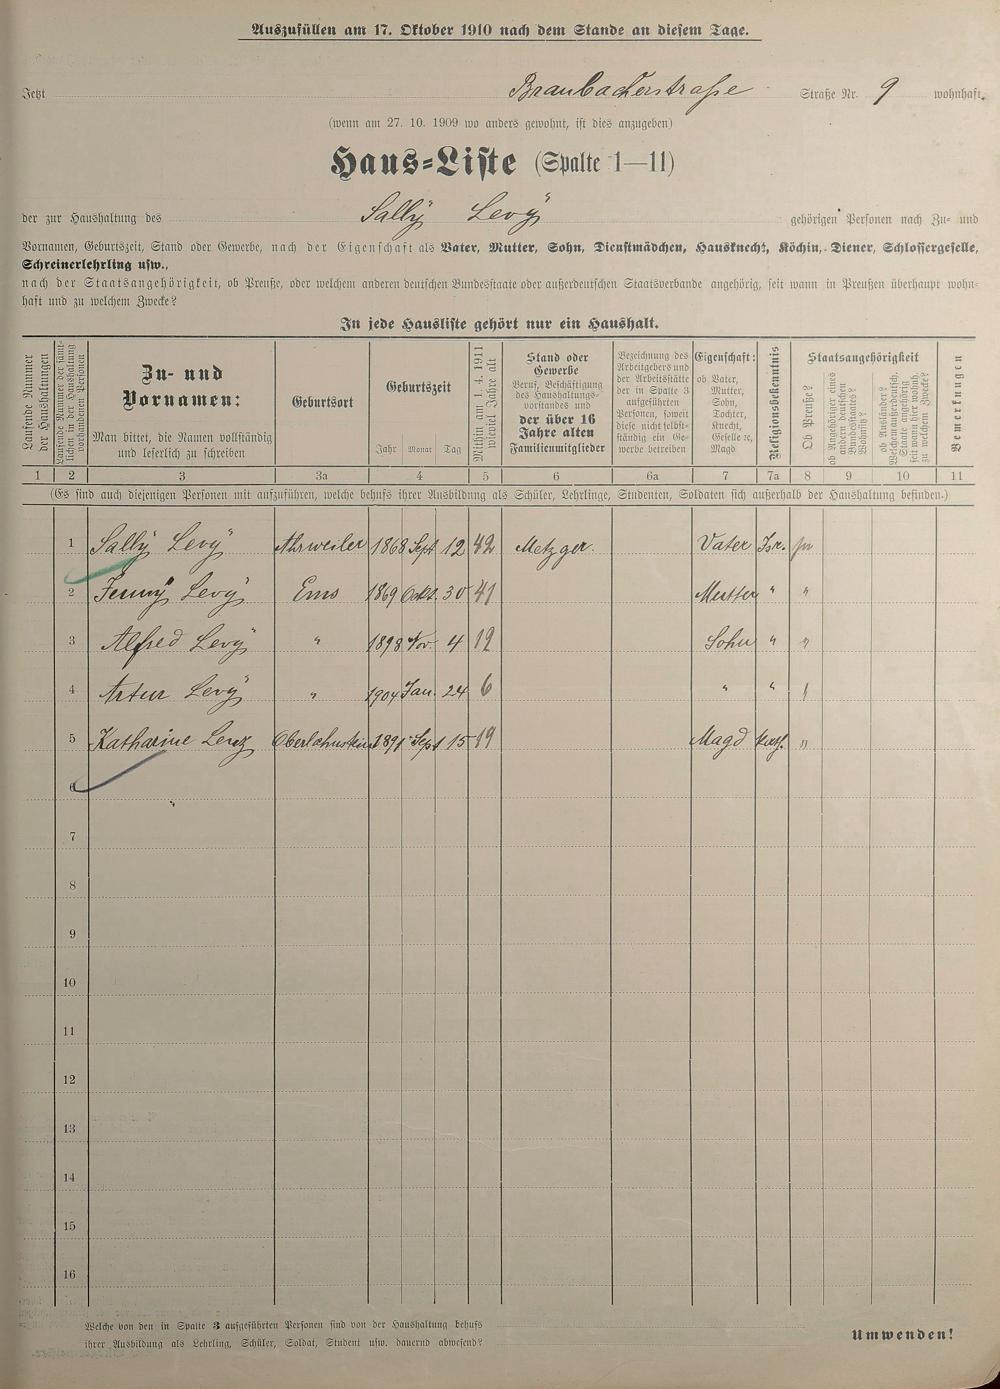 Auszufüllen am 17. Oktober 1910 nach dem Stande an diesem Tage.
Jetzt Braubacherstraße Straße Nr. 9 wohnhaft.
(wenn am 27. 10. 1909 wo anders gewohnt, ist dies anzugeben)
Haus-Liste (Spalte 1—11)
der zur Haushaltung des Sally Levy gehörigen Personen nach Zu- und
Vornamen, Geburtszeit, Stand oder Gewerbe, nach der Eigenschaft als Vater, Mutter, Sohn, Dienstmädchen, Hausknecht, Köchin, Diener, Schlossergeselle,
Schreinerlehrling usw.,
nach der Staatsangehörigkeit, ob Preuße, oder welchem anderen deutschen Bundesstaate oder außerdeutschen Staatsverbande angehörig, seit wann in Preußen überhaupt wohn-
haft und zu welchem Zwecke?
In jede Hausliste gehört nur ein Haushalt.
Laufende Nummer der Haushaltungen
Laufende Nummer der sämt-
lichen in der Haushaltung
vorhandenen Personen
Zu- und
Vornamen:
Man bittet, die Namen vollständig
und leserlich zu schreiben
Geburtsort
Geburtszeit
Jahr Monat Tag
Mithin am 1. 4. 1911
wieviel Jahre alt
Stand oder
Gewerbe
Beruf, Beschäftigung
des Haushaltungs-
vorstandes und
der über 16
Jahre alten
Familienmitglieder
Bezeichnung des
Arbeitgebers und
der Arbeitsstätte
der in Spalte 3
aufgeführten
Personen, soweit
diese nicht selbst-
ständig ein Ge-
werbe betreiben
Eigenschaft:
ob Vater,
Mutter,
Sohn,
Tochter,
Knecht,
Geselle ec,
Magd
Religionsbekenntnis
Staatsangehörigkeit
Ob Preuße?
ob Angehöriger eines
andern deutschen
Bundesstaates?
Wohnsitz?
ob Ausländer?
Welchem außerdeutsch.
Staate angehörig
seit wann hier wohnh.
zu welchem Zwecke?
Bemerkungen
1 2 3 3a 4 5 6 6a 7 7a 8 9 10 11
(Es sind auch diejenigen Personen mit aufzuführen, welche behufs ihrer Ausbildung als Schüler, Lehrlinge, Studenten, Soldaten sich außerhalb der Haushaltung befinden.)
1 Sally Levy Ahrweiler 1868 Sept 12 42 Metzger. Vater Isr.
2 Jenny Levy Ems 1869 Okt. 30 41 Mutter " "
3 Alfred Levy " 1898 Nov. 4 12 Sohn " "
4 Artur Levy " 1904 Jan. 24 6 " " "
5 Katharine Lenz Oberlahnstein 1891 Sept 15 19 Magd kath. "
6
7
8
9
10
11
12
13
14
15
16
Welche von den in Spalte 3 aufgeführten Personen sind von der Haushaltung behufs
ihrer Ausbildung als Lehrling, Schüler, Soldat, Student usw. dauernd abwesend?
Umwenden!